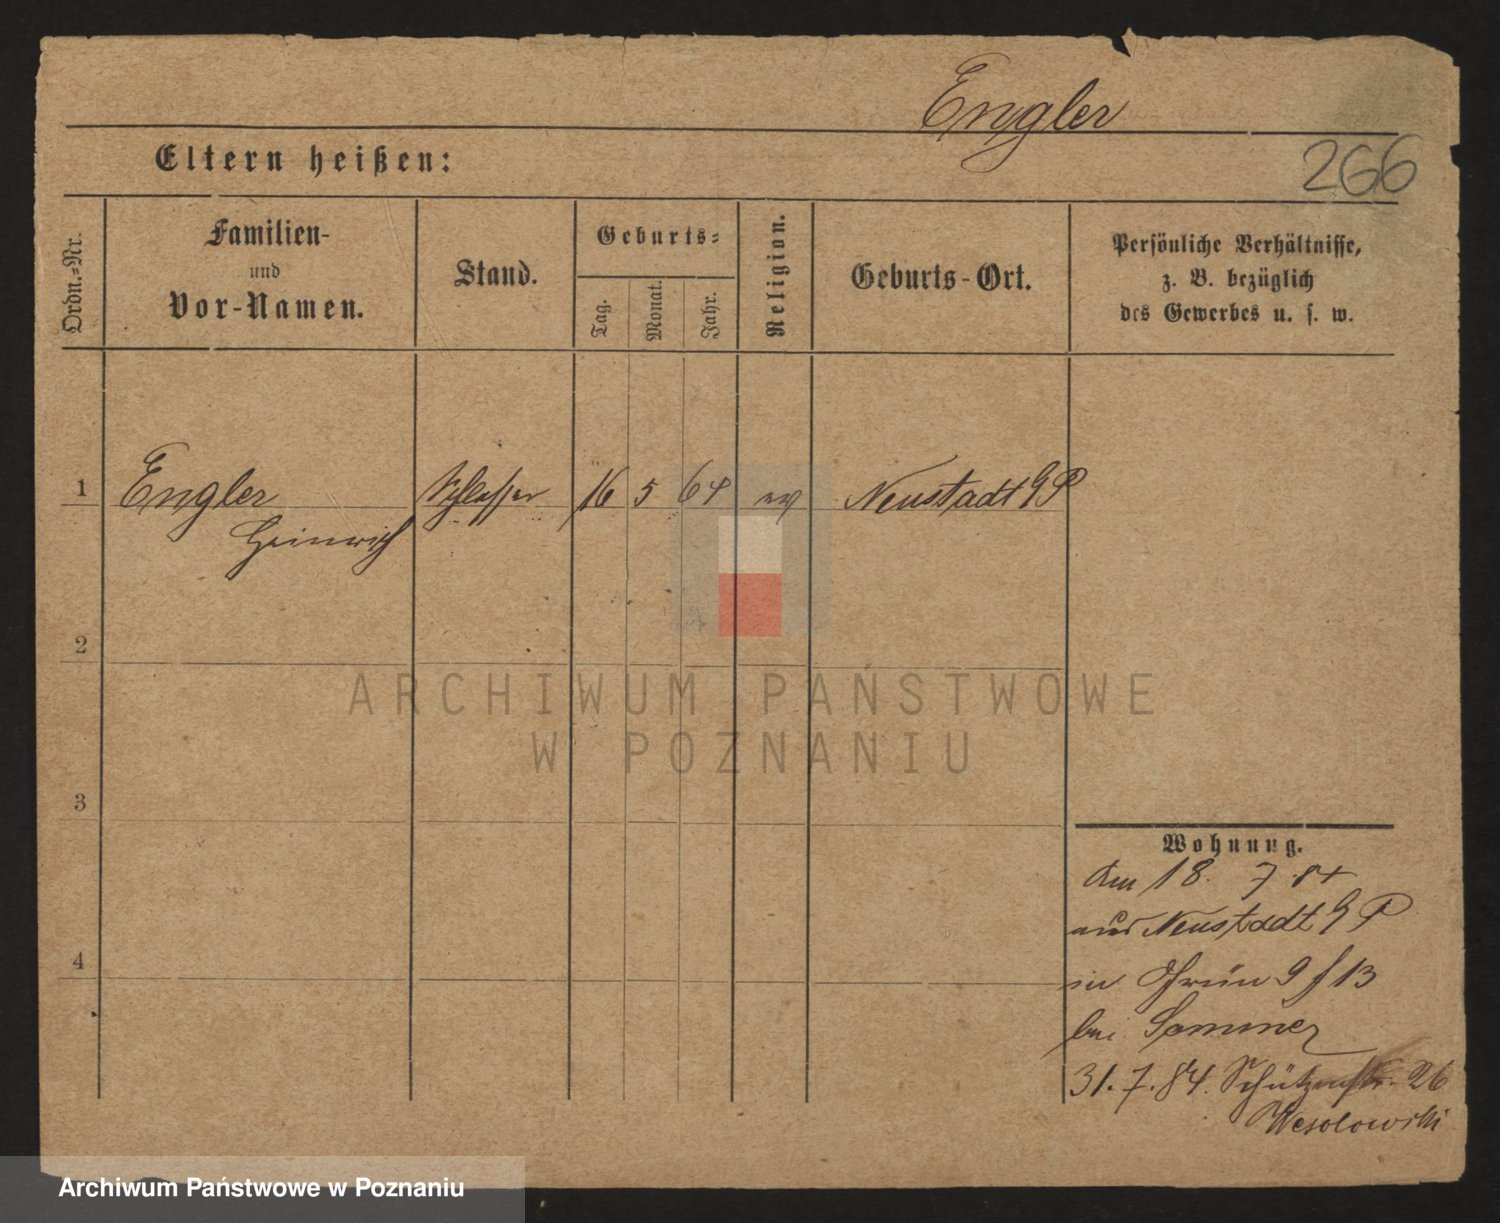 Engler
266
Eltern heißen:
Ordn.-Nr.
Familien-
und
Vor-Namen.
Stand.
Geburts-
Tag.
Monat.
Jahr.
Religion.
Geburts-Ort.
Persönliche Verhältnisse,
z. B. bezüglich
des Gewerbes u. s. w.
1 Engler Schlosser 16 5 64 ev Neustadt G P
Heinrich
2
ARCHIWUM PAŃSTWOWE
W POZNANIU
3
4
Wohnung.
Am 18. 7 84
aus Neustadt G P
in Grün 9 f 13
bei Sommer
31. 7. 84. Schützenstr. 26
Wesolowski
Archiwum Państwowe w Poznaniu